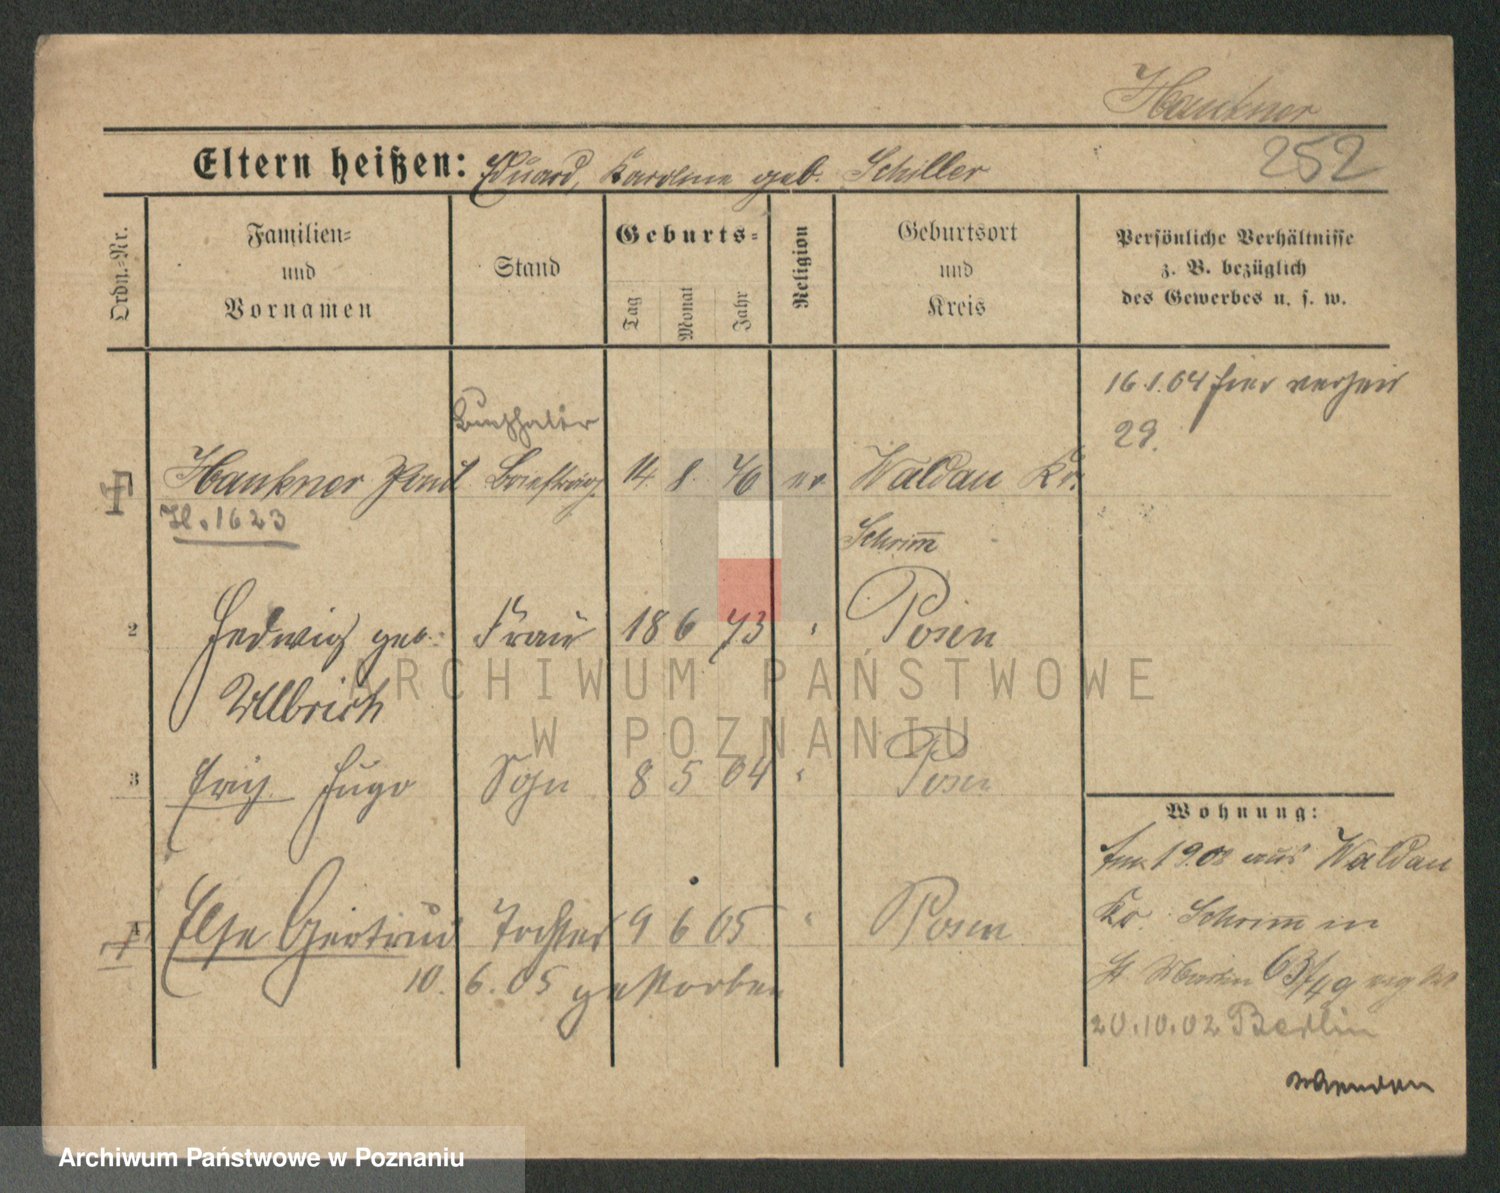 Haukner
252
Eltern heißen: Eduard, Karoline geb. Schiller
Ordn.-Nr.
Familien-
und
Vornamen
Stand
Geburts-
Tag
Monat
Jahr
Religion
Geburtsort
und
Kreis
Persönliche Verhältnisse
z. B. bezüglich
des Gewerbes u. s. w.
16.1.04 hier verheir
29.
Buchhalter
Haukner Paul Briefträg. 14. 8. 76 ev Waldau Kr.
1623
Schrimm
2 Hedwig geb. Frau 18 6 73 " Posen
Ullbrich
3 Erich Hugo Sohn 8 5 04 " Posen
Wohnung:
1908 aus Waldau
Kr. Schrimm in
St Martin 63/49
20.10.02 Berlin
4 Else Gertrud Tochter 9 6 05 " Posen
10. 6. 05 gestorben
wenden
ARCHIWUM PAŃSTWOWE
W POZNANIU
Archiwum Państwowe w Poznaniu